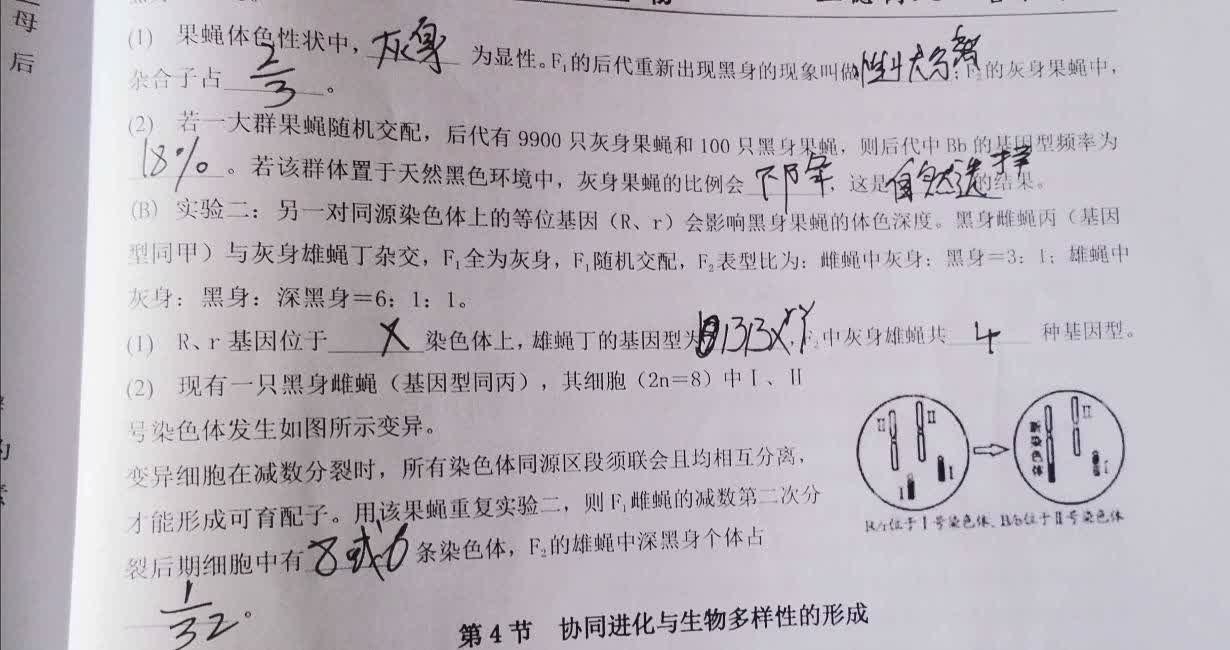 母
后
(1) 果蝇体色性状中，灰身为显性。F₁的后代重新出现黑身的现象叫做性状分离；F₂的灰身果蝇中，
杂合子占2/3。
(2) 若一大群果蝇随机交配，后代有9900只灰身果蝇和100只黑身果蝇，则后代中Bb的基因型频率为
18%。若该群体置于天然黑色环境中，灰身果蝇的比例会下降，这是自然选择的结果。
(B) 实验二：另一对同源染色体上的等位基因（R、r）会影响黑身果蝇的体色深度。黑身雌蝇丙（基因
型同甲）与灰身雄蝇丁杂交，F₁全为灰身，F₁随机交配，F₂表型比为：雌蝇中灰身：黑身＝3：1；雄蝇中
灰身：黑身：深黑身＝6：1：1。
(1) R、r基因位于X染色体上，雄蝇丁的基因型为BBXʳY，F₂中灰身雄蝇共4种基因型。
(2) 现有一只黑身雌蝇（基因型同丙），其细胞（2n＝8）中Ⅰ、Ⅱ
号染色体发生如图所示变异。
变异细胞在减数分裂时，所有染色体同源区段须联会且均相互分离，
才能形成可育配子。用该果蝇重复实验二，则F₁雌蝇的减数第二次分
裂后期细胞中有8或6条染色体，F₂的雄蝇中深黑身个体占
1/32。
Ⅱ Ⅱ Ⅰ Ⅰ
新染色体 Ⅱ Ⅰ
R/r位于Ⅰ号染色体、B/b位于Ⅱ号染色体
第4节 协同进化与生物多样性的形成